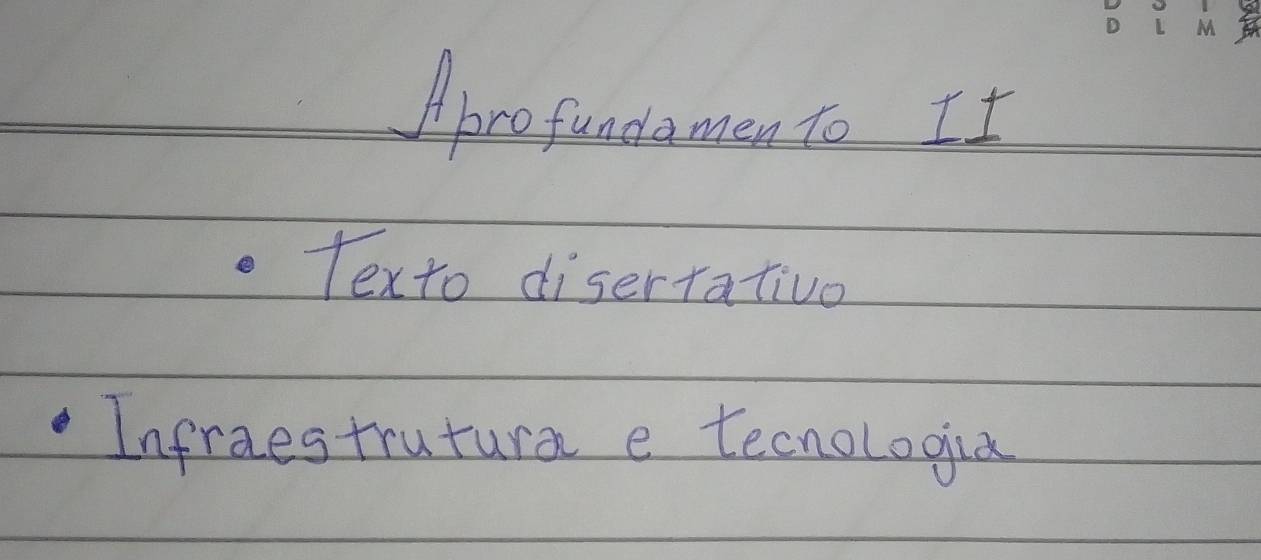 D L M
Aprofundamento II
• Texto disertativo
• Infraestrutura e tecnologia